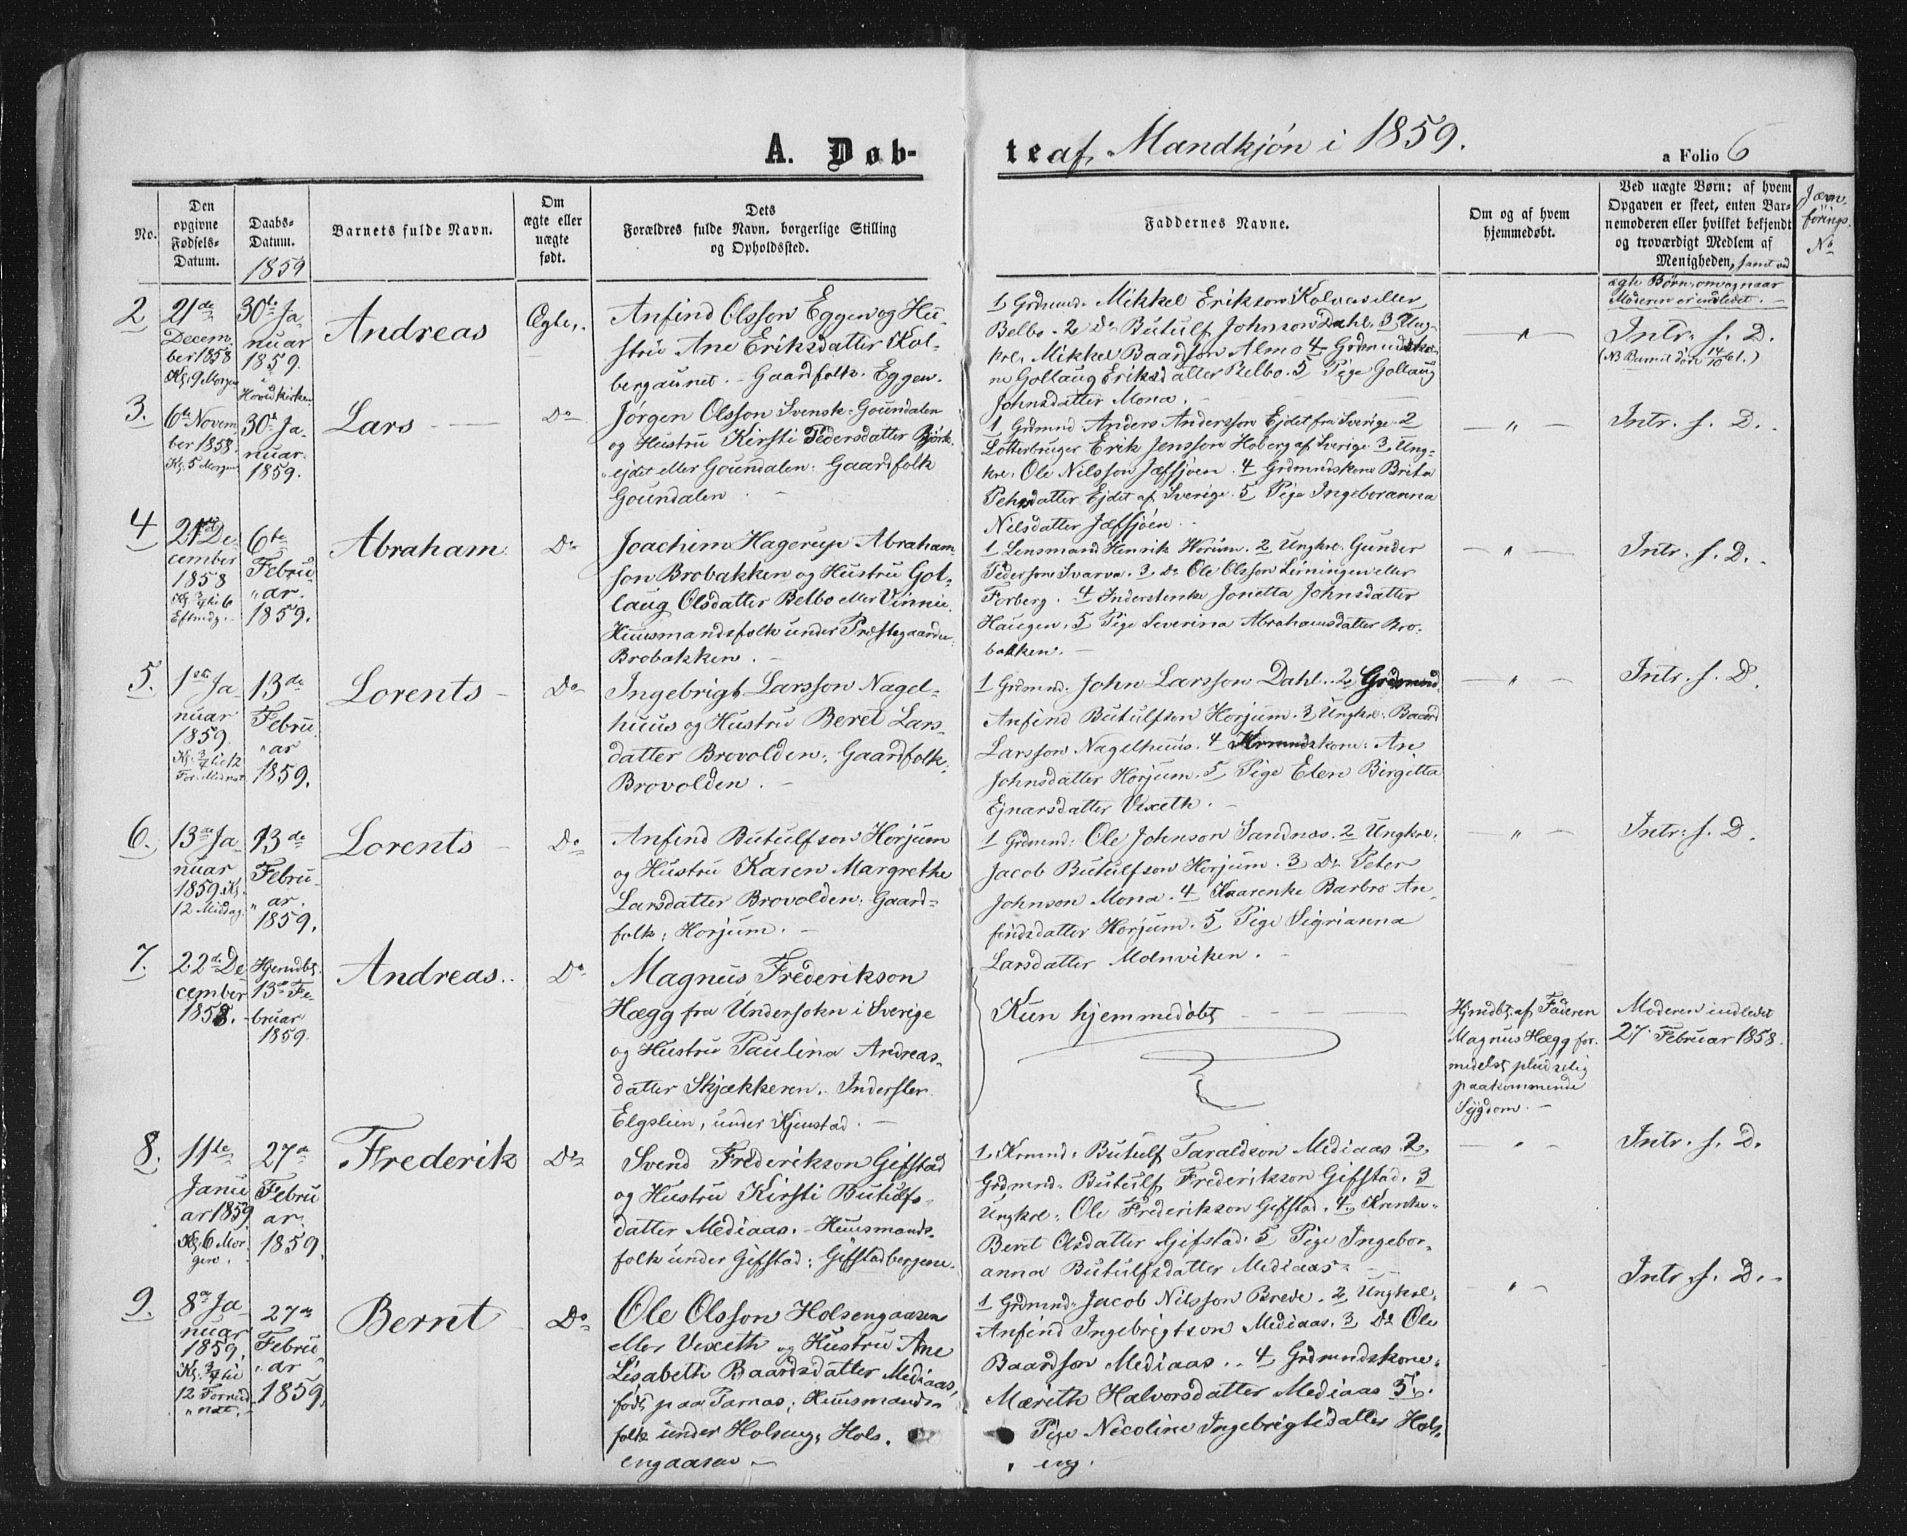 A. Døb-
te af Mandkjøn i 1859.
a Folio 6
No.
Den
opgivne
Fødsels-
Datum.
Daabs-
Datum.
1859
Barnets fulde Navn.
Om
ægte eller
uægte
født.
Dets
Forældres fulde Navn, borgerlige Stilling
og Opholdssted.
Faddernes Navne.
Om og af hvem
hjemmedøbt.
Ved uægte Børn: af hvem
Opgaven er skeet, enten Bar-
nemoderen eller hvilket bekjendt
og troværdigt Medlem af
Menigheden, samt ved
ægte Børn: om og naar
Moderen er indledet. -
Jævn-
førings
No
2
21de
Decem-
ber 1858
Kl. 9 Morgen
30te Ja-
nuar
1859.
i
Hovedkirken
Andreas
Ægte.
Anfind Olsson Eggen og Hu-
stru Ane Eriksdatter Kol-
bergaunet. - Gaardfolk. Eggen.
1 Grdmnd. Mikkel Erikson Kolvas eller
Belbo. 2 Do Butulf Johnson Dahl. 3 Ung-
krl. Mikkel Baardson Almo 4 Grdmndsko-
ne Gollaug Eriksdatter Belbo. 5 Pige Gollaug
Johnsdatter Mona. -
"
Intr. s. D.
3.
6te Novem-
ber 1858.
Kl. 5 Morgen
30te Ja-
nuar.
1859.
Lars
Do
Jørgen Olsson Svensk-Goundalen
og Hustru Kirsti Pedersdatter Björk-
ejdet eller Goundalen: Gaardfolk
Goundalen. -
1. Grdmnd Anders Andersson Ejdet fra Sverige. 2
Lotterbruger Erik Jensson Hoberg af Sverige 3 Ung-
krl. Ole Nilsson Jæfsjøen. 4 Grdmndskone Brita
Pehrsdatter Ejdet af Sverige. 5 Pige Ingeboranna
Nilsdatter Jæfsjøen.
"
Intr. s. D.
4
21de De-
cember
1858
Kl. 3/4 til 6
Eftmdg.
6te
Febru-
" ar.
1859.
Abraham
Do
Joachim Hagerup Abraham-
son Brobakken og Hustru Gol-
laug Olsdatter Belbo eller Vinnie.
Huusmandsfolk under Præstegaarden,
Brobakken. -
1 Lensmand Henrik Horum. 2 Ungkrl. Gunder
Pederson Svarva. 3 Do Ole Olsson Lirningen eller
Forberg. 4 Inderstenke Jonetta Johnsdatter
Haugen. 5 Pige Severina Abrahamsdatter Bro-
bakken. -
"
Intr. s. D.
5.
1ste Ja
nuar
1859.
Kl. 3/4 til 12
For. Midnat.
13de
Febru
" ar
1859.
Lorents
Do
Ingebrigt Larsson Nagel-
huus og Hustru Beret Lars-
datter Brovolden: Gaardfolk.
Brovolden. -
1 Grdmnd. John Larsson Dahl. 2 Grdmnd
Anfind Butulfson Horjum. 3 Ungkrl. Baard
Larsson Nagelhuus. 4 Krmndskone: An
Johnsdatter Horjum. 5 Pige Elen Birgitta
Ejnarsdatter Vexeth. -
"
Intr. s. D.
6.
13de Ja
nuar
1859. Kl.
12 Middag.
13de
Febru-
" ar.
1859.
Lorents
Do
Anfind Butulfson Horjum
og Hustru Karen Margrethe
Larsdatter Brovolden: Gaard-
folk: Horjum. -
1 Grdmnd: Ole Johnson Sandnæs. 2 Ungkrl.
Jacob Butulfson Horjum. 3 Do Peter
Johnson Mona. 4 Kaarenke Barbro An-
findsdatter Horjum. 5 Pige Sigrianna
Larsdatter Moenviken. -
"
Intr. s. D.
7.
22de De
cember
1858.
Hjemdbt
13de Fe-
bruar
1859.
Andreas.
Do
Magnus Frederikson
Hægg fra Undersokn i Sverige
og Hustru Paulina Andreas-
datter Skjækkeren. Inderster
Elgslien, under Kjenstad. -
Kun hjemmedøbt
Hjmdbt af Faderen
Magnus Hægg for-
medelst pludselig
paakommende
Sygdom. -
Moderen indledet
27. Februar 1858.
8.
11te
Janu
ar 1859
Kl. 6 Mor-
gen.
27de
Febru
ar.
1859.
Frederik
Do
Svend Frederikson Gifstad
og Hustru Kirsti Butulfs-
datter Mediaas. - Huusmands-
folk under Gifstad: Gifstadbergene.
1. Krmnd. Butulf Taraldson Mediaas 2
Grdmnd. Butulf Frederikson Gifstad. 3
Ungkrl. Ole Frederikson Gifstad. 4. Krenke.
Beret Olsdatter Gifstad. 5 Pige Ingebor-
anna Butulfsdatter Mediaas -
"
Intr. s. D.
9.
8de Ja
nuar
1859.
Kl. 3/4 til
12 Formid
" nat.
27de
Febru
" ar
1859.
Bernt
Do
Ole Olsson Holsengaasen
eller Vexeth og Hustru Ane
Lisabeth Baardsdatter Mediaas,
født paa Tarnas; Huusmands-
folk under Holseng, Hols.
engaasen -
1 Grdmnd. Jacob Nilsson Brede. 2 Ungkrl.
Anfind Ingebrigtson Mediaas. 3 Do Ole
Baardson Mediaas. 4 Grdmndskone.
Mærith Halvorsdatter Mediaas 5.
Pige Nicoline Ingebrigtsdatter Hols-
eng.
"
Intr. s. D. -